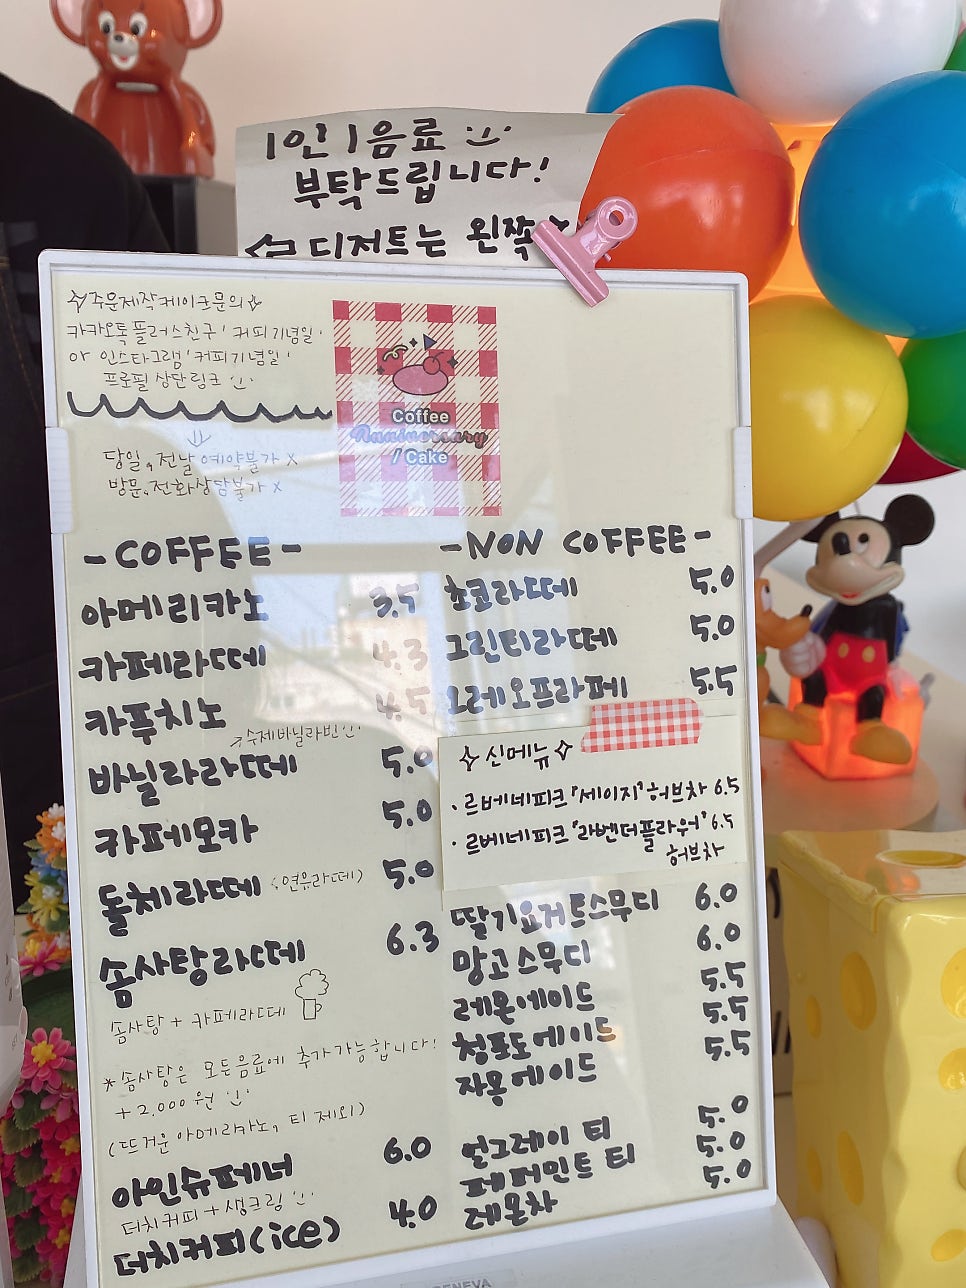 1인 1음료
부탁드립니다!
디저트는 왼쪽
주문제작케이크문의
카카오톡 플러스친구 '커피기념일'
or 인스타그램 '커피기념일'
프로필 상단링크
당일, 전날 예약불가 X
방문, 전화상담불가 X
Coffee
Anniversary
/ Cake
- COFFEE -
아메리카노 3.5
카페라떼 4.3
카푸치노 4.5
수제바닐라빈
바닐라라떼 5.0
카페모카 5.0
돌체라떼 (연유라떼) 5.0
솜사탕라떼 6.3
솜사탕 + 카페라떼
*솜사탕은 모든음료에 추가가능합니다!
+ 2.000원
(뜨거운 아메리카노, 티 제외)
아인슈페너 6.0
더치커피 + 생크림
더치커피(ice) 4.0
- NON COFFEE -
초코라떼 5.0
그린티라떼 5.0
오레오프라페 5.5
신메뉴
· 르베네피크 "세이지" 허브차 6.5
· 르베네피크 "라벤더플라워" 6.5
허브차
딸기요거트스무디 6.0
망고스무디 6.0
레몬에이드 5.5
청포도에이드 5.5
자몽에이드 5.5
얼그레이 티 5.0
페퍼민트 티 5.0
레몬차 5.0
GENEVA